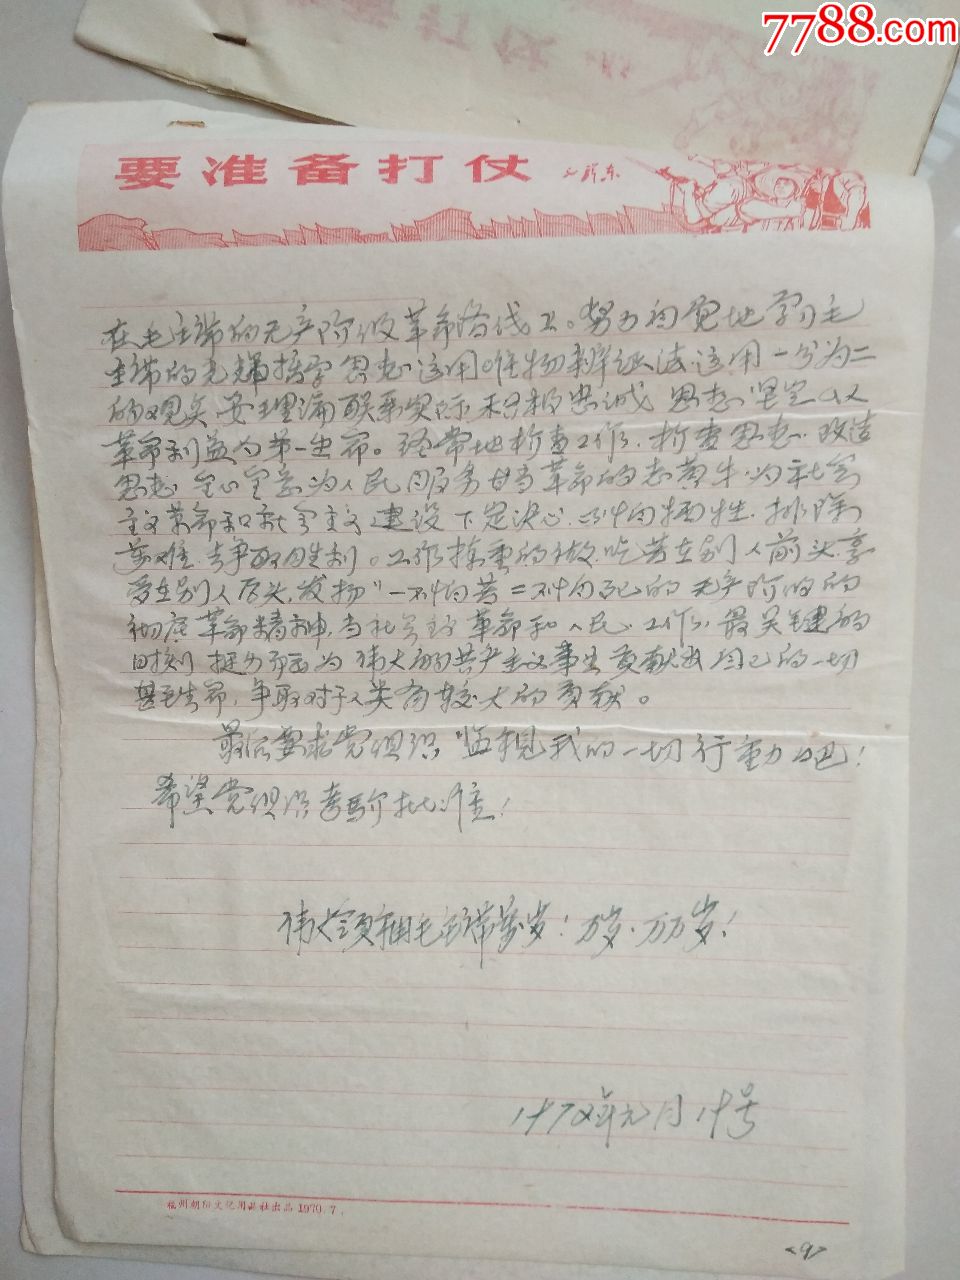 7788.com
要准备打仗 毛泽东
在毛主席的无产阶级革命路线上。努力自觉地学习毛
主席的光辉哲学思想运用唯物辩证法运用一分为二
的观点 要理论联系实际 积极忠诚 思想坚定 以
革命利益为第一生命。经常地折查工作、折查思想、改造
思想 全心全意为人民服务甘当革命的老黄牛.为社会
主义革命和社会主义建设下定决心.不怕牺牲.排除
万难.去争取胜利。工作拣重的做.吃苦在别人前头.享
受在别人后头.发扬"一不怕苦二不怕死的无产阶级的
彻底革命精神.当社会主义革命和人民工作.最关键的
时刻 挺身而出为伟大的共产主义事业贡献出自己的一切
甚至生命.争取对于人类有较大的贡献。
最后要求党组织 监视我的一切行动吧!
希望党组织考验批准!
伟大领袖毛主席万岁!万岁.万万岁!
元月19号
福州朝阳文化用品社出品 1970.7.
<9>